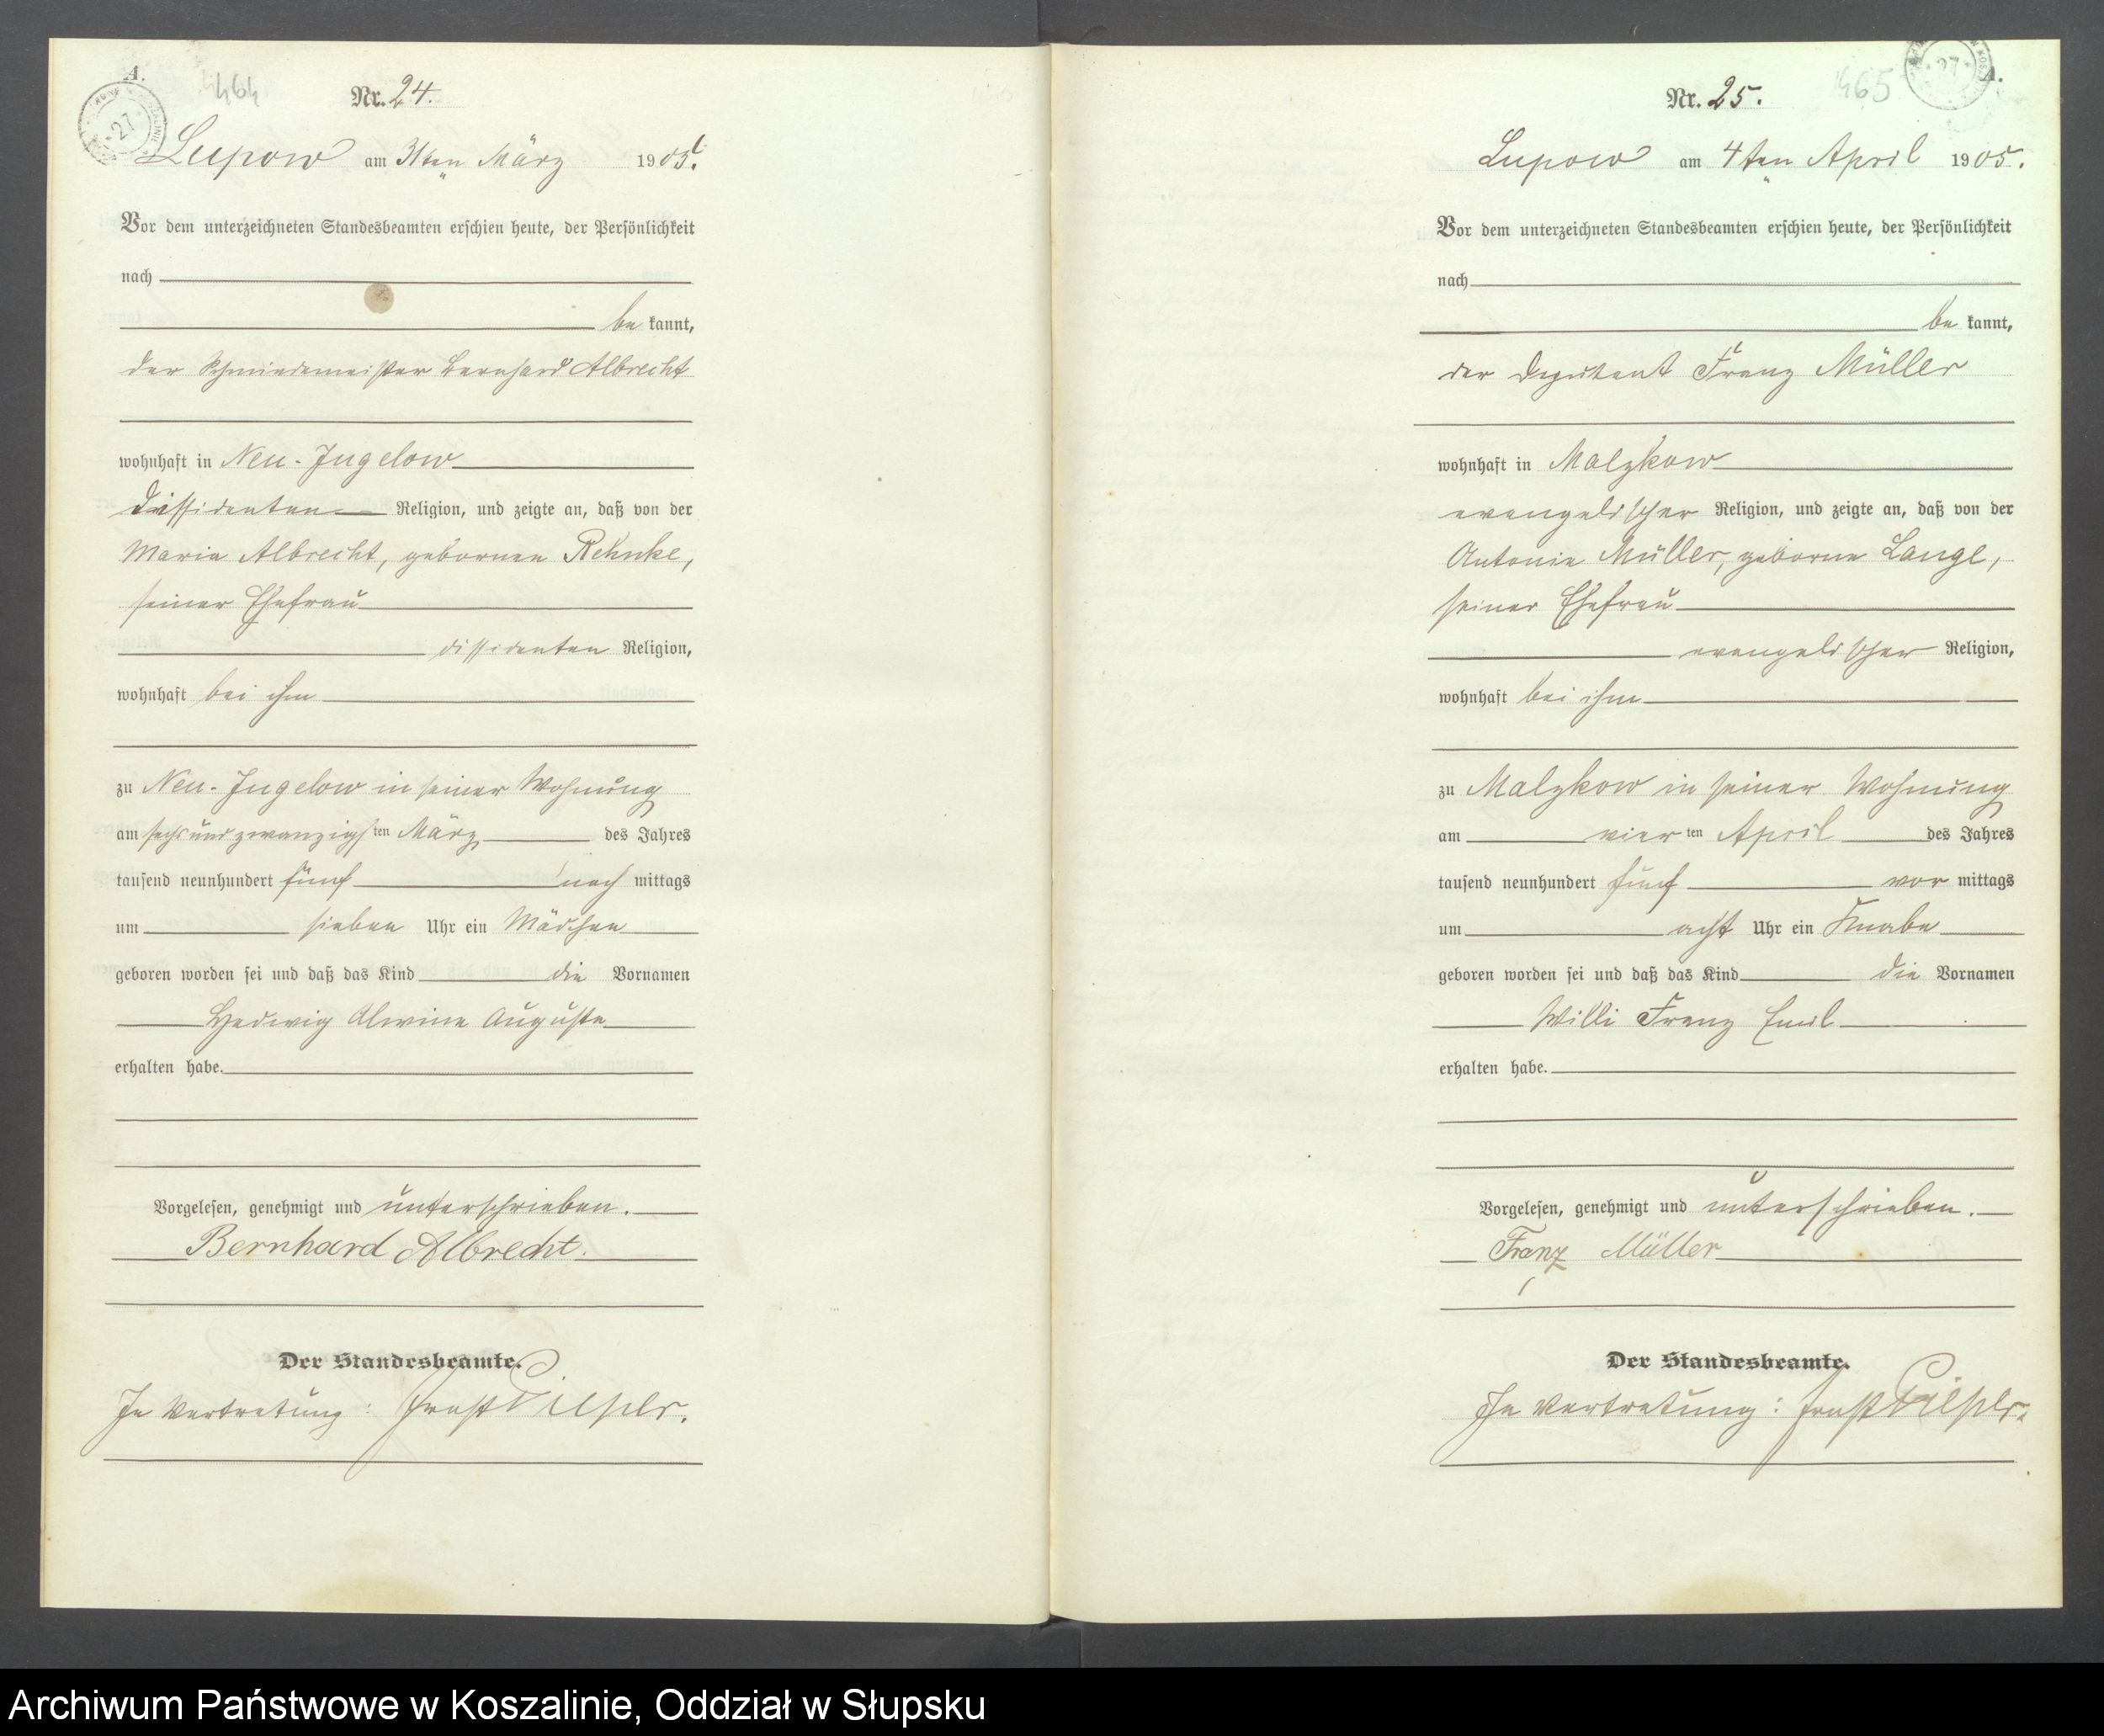 A.
464
Nr. 24.
27
Lupow am 31ten März 1905.
Vor dem unterzeichneten Standesbeamten erschien heute, der Persönlichkeit
nach
be kannt,
der Schmiedemeister Bernhard Albrecht
wohnhaft in Neu-Jugelow
Dissidenten Religion, und zeigte an, daß von der
Maria Albrecht, gebornen Rehnke,
seiner Ehefrau
dissidenten Religion,
wohnhaft bei ihm
zu Neu-Jugelow in seiner Wohnung
am sechsundzwanzigsten März des Jahres
tausend neunhundert fünf nach mittags
um sieben Uhr ein Mädchen
geboren worden sei und daß das Kind die Vornamen
Hedwig Alwine Auguste
erhalten habe.
Vorgelesen, genehmigt und unterschrieben.
Bernhard Albrecht.
Der Standesbeamte.
In Vertretung: Ernst
A.
465
Nr. 25.
27
Lupow am 4ten April 1905.
Vor dem unterzeichneten Standesbeamten erschien heute, der Persönlichkeit
nach
be kannt,
der Deputant Franz Müller
wohnhaft in Malzkow
evangelischer Religion, und zeigte an, daß von der
Antonie Müller, geborne Lange,
seiner Ehefrau
evangelischer Religion,
wohnhaft bei ihm
zu Malzkow in seiner Wohnung
am vierten April des Jahres
tausend neunhundert fünf vor mittags
um acht Uhr ein Knabe
geboren worden sei und daß das Kind die Vornamen
Willi Franz Emil
erhalten habe.
Vorgelesen, genehmigt und unterschrieben.
Franz Müller
Der Standesbeamte.
In Vertretung: Ernst
Archiwum Państwowe w Koszalinie, Oddział w Słupsku